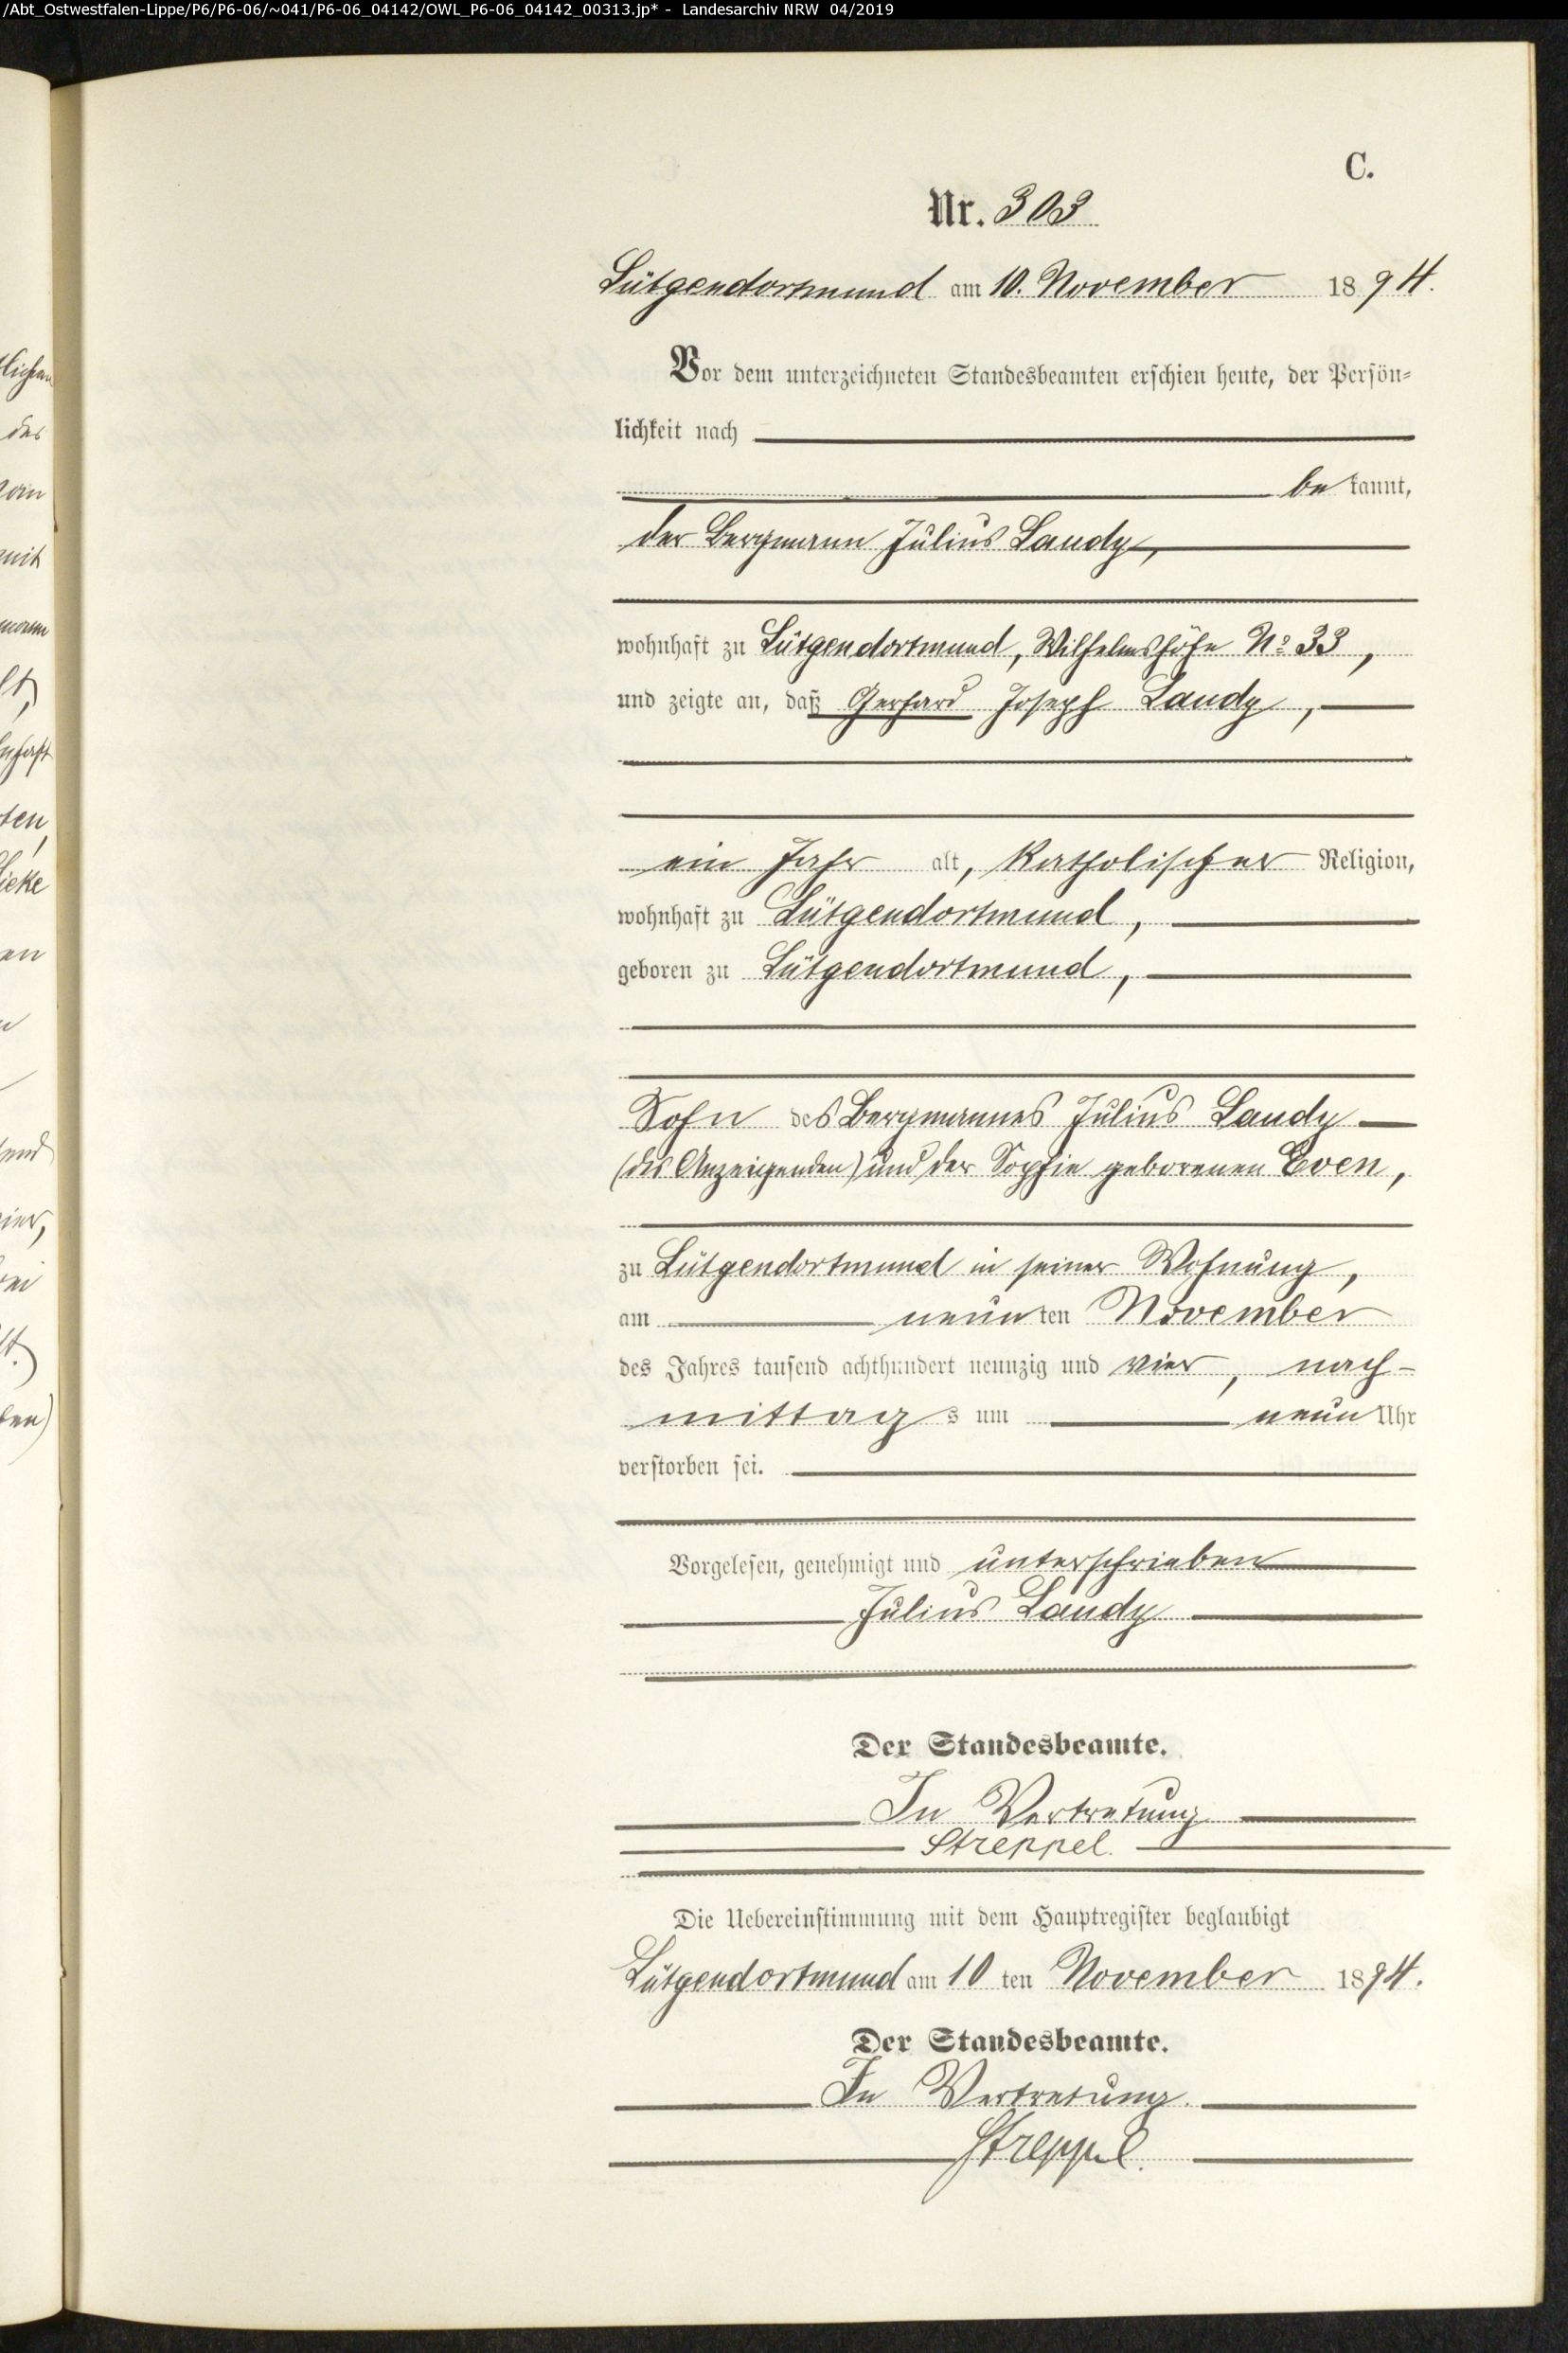 /Abt_Ostwestfalen-Lippe/P6/P6-06/~041/P6-06_04142/OWL_P6-06_04142_00313.jp* - Landesarchiv NRW 04/2019
C.
Nr. 303
Lütgendortmund am 10. November 1894.
Vor dem unterzeichneten Standesbeamten erschien heute, der Persön-
lichkeit nach
be kannt,
der Bergmann Julius Landy,
wohnhaft zu Lütgendortmund, Wilhelmshöhe No 33,
und zeigte an, daß Gerhard Joseph Landy,
ein Jahr alt, katholischer Religion,
wohnhaft zu Lütgendortmund,
geboren zu Lütgendortmund,
Sohn des Bergmannes Julius Landy
(des Anzeigenden) und der Sophie geborenen Even,
zu Lütgendortmund in seiner Wohnung,
am neunten November
des Jahres tausend achthundert neunzig und vier, nach-
mittags um neun Uhr
verstorben sei.
Vorgelesen, genehmigt und unterschrieben
Julius Landy
Der Standesbeamte.
In Vertretung
Streppel.
Die Uebereinstimmung mit dem Hauptregister beglaubigt
Lütgendortmund am 10 ten November 1894.
Der Standesbeamte.
In Vertretung.
Streppel.